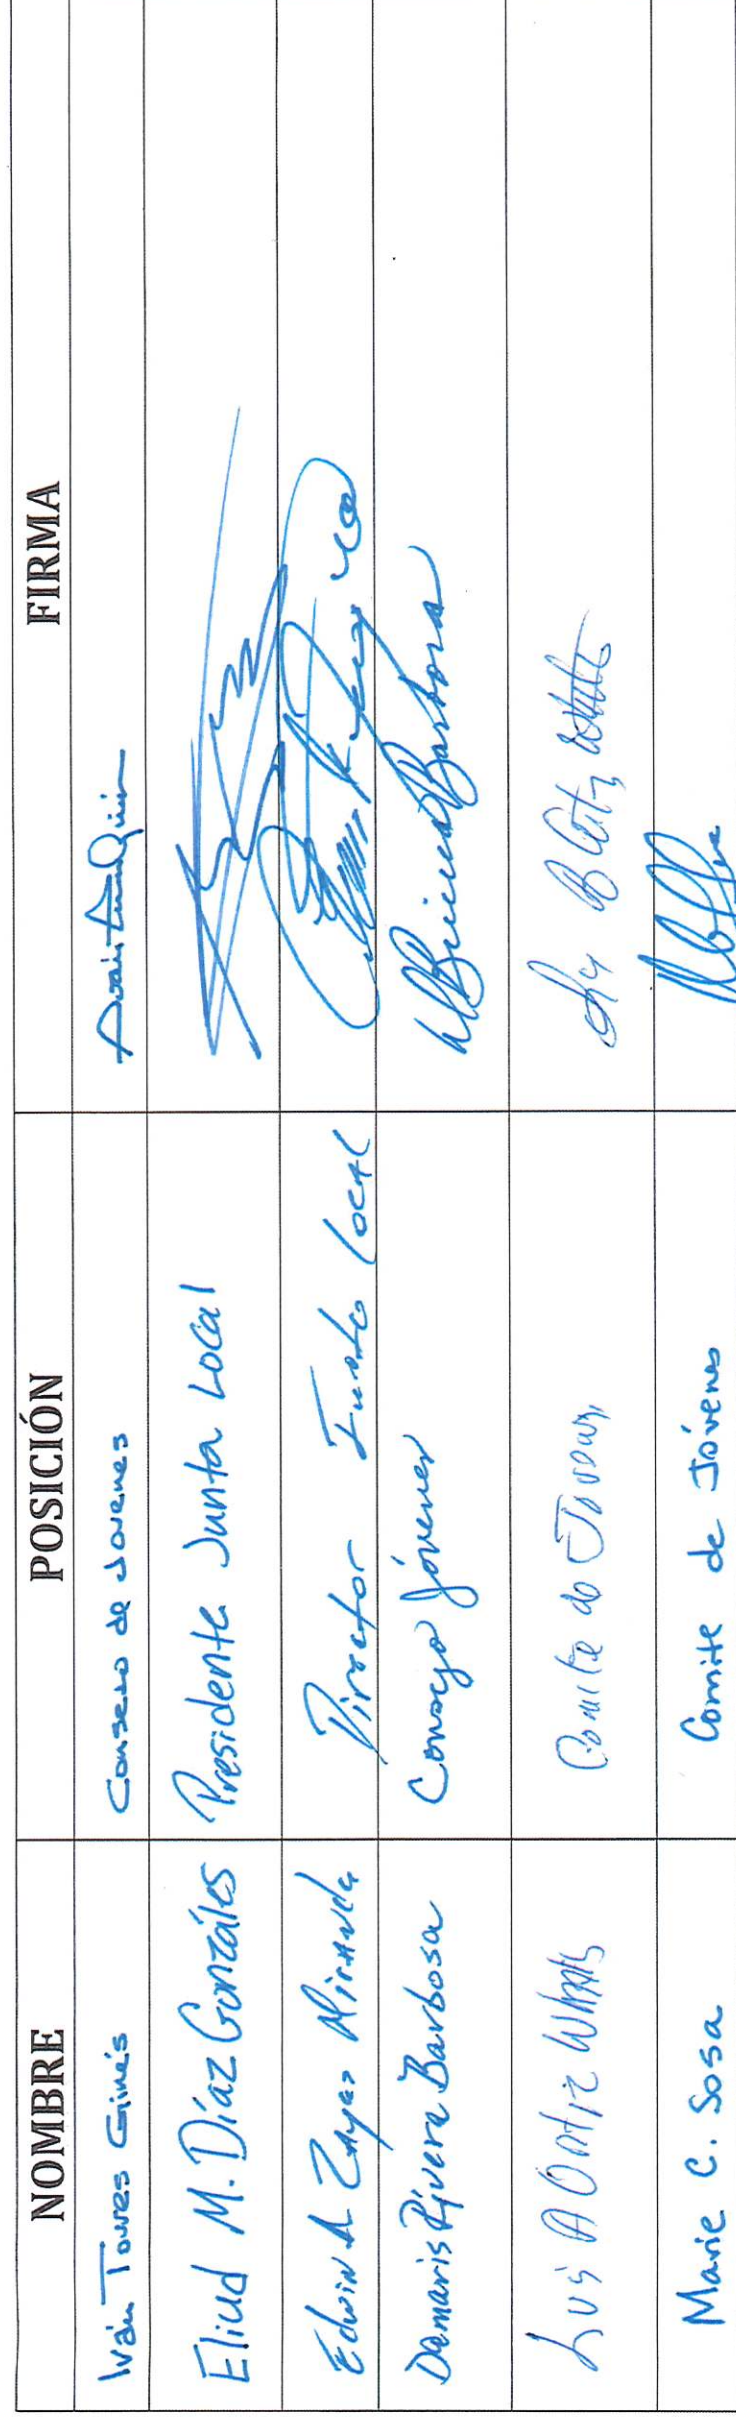 NOMBRE POSICIÓN FIRMA
Iván Torres Ginés Consejo de Jovenes
Eliud M. Díaz Gonzáles Presidente Junta Local
Edwin A Zayas Miranda Director Junta Local
Damaris Rivera Barbosa Consejo jóvenes
Luis A Ortiz Comite de
Marie C. Sosa Comite de Jóvenes